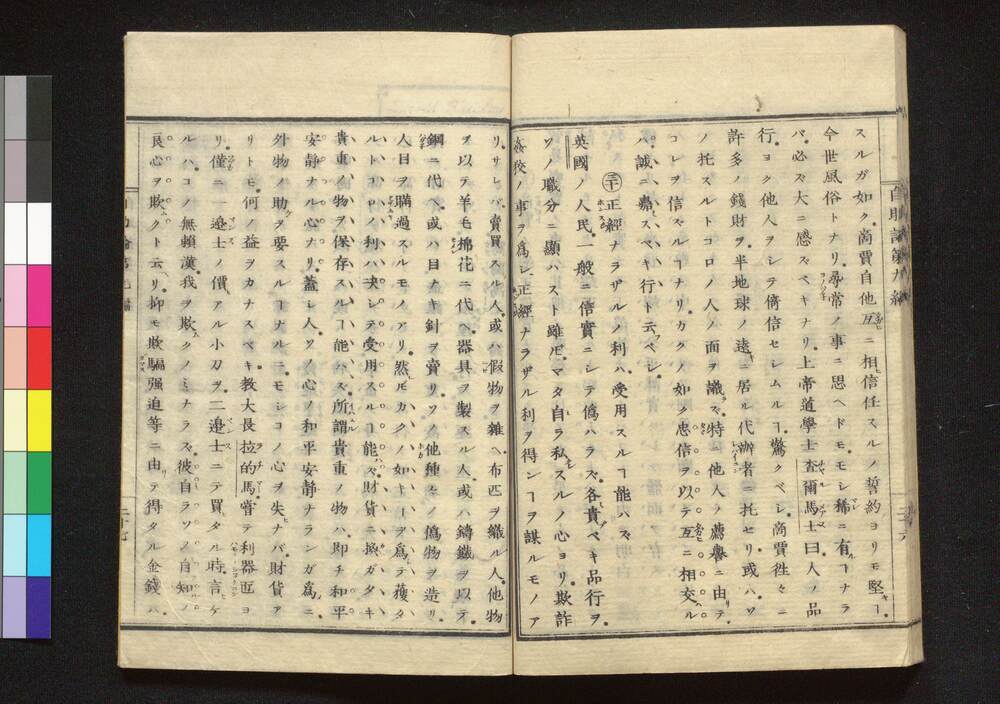 スルガ如ク。商賈自他互ニ相信任スルノ誓約ヨリモ堅キヿ。
今世風俗トナリ。尋常ノ事ニ思ヘドモ。モシ稀ニ有ルヿナラ
バ。必ズ大ニ感ズベキナリ。上帝道學士査爾馬士曰。人ノ品
行。ヨク他人ヲシテ倚信セシムルヿ。驚クベシ。商賈徃々ニ
許多ノ錢財ヲ。半地球ノ遠ニ居ル代辦者ニ托セリ。或ハソ
ノ托スルトコロノ人ノ面ヲ識ラズ。特ニ他人ノ薦譽ニ由テ。
コレヲ信ズルヿナリ。カクノ如ク忠信ヲ以テ互ニ相交ル
ハ。誠ニ嘉スベキ行ト云フベシ。
㊂十 正經ナラザルノ利ハ。受用スルヿ能ハズ。
英國ノ人民。一般ニ信實ニシテ僞ハラズ。各貴ブベキ品行ヲ。
ソノ職分ニ顯ハスト雖ドモ。マタ自ラ私スルノ心ヨリ。欺詐
姦狡ノ事ヲ爲シ。正經ナラザル利ヲ得ンヿヲ謀ルモノア
リ。サレバ。賣買スル人。或ハ假物ヲ雜ヘ。布匹ヲ織ル人。他物
ヲ以テ羊毛棉花ニ代ヘ。器具ヲ製スル人。或ハ鑄鐵ヲ以テ。
鋼ニ代ヘ。或ハ目ナキ針ヲ賣リ。ソノ他種々ノ僞物ヲ造リ。
人目ヲ瞞過スルモノアリ。然ドモカクノ如キヿヲ爲テ獲タ
ルトコロノ利ハ。決シテ受用スルヿ能ハズ。財貨ニ換ガタキ
貴重ノ物ヲ保存スルヿ能ハズ。所謂貴重ノ物ハ。即チ和平
安靜ナル心ナリ。蓋シ人。ソノ心ノ和平安靜ナランガ爲ニ。
外物ノ助ヲ要スルヿナルニ。モシコノ心ヲ失ナバ。財貨ア
リトモ。何ノ益ヲカナスベキ。教大長拉的馬嘗テ利器匠ヨ
リ。僅ニ一邊士ノ價アル小刀ヲ。二邊士ニテ買タル時。言ケ
ルハ。コノ無賴漢。我ヲ欺クノミナラズ。彼自ラソノ自知ノ
良心ヲ欺クト云リ。抑モ欺騙强迫等ニ由テ得タル金錢ハ。